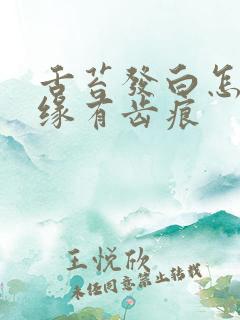 舌苔發白怎
缘有齿痕
王悦欣
未经同意禁止转载